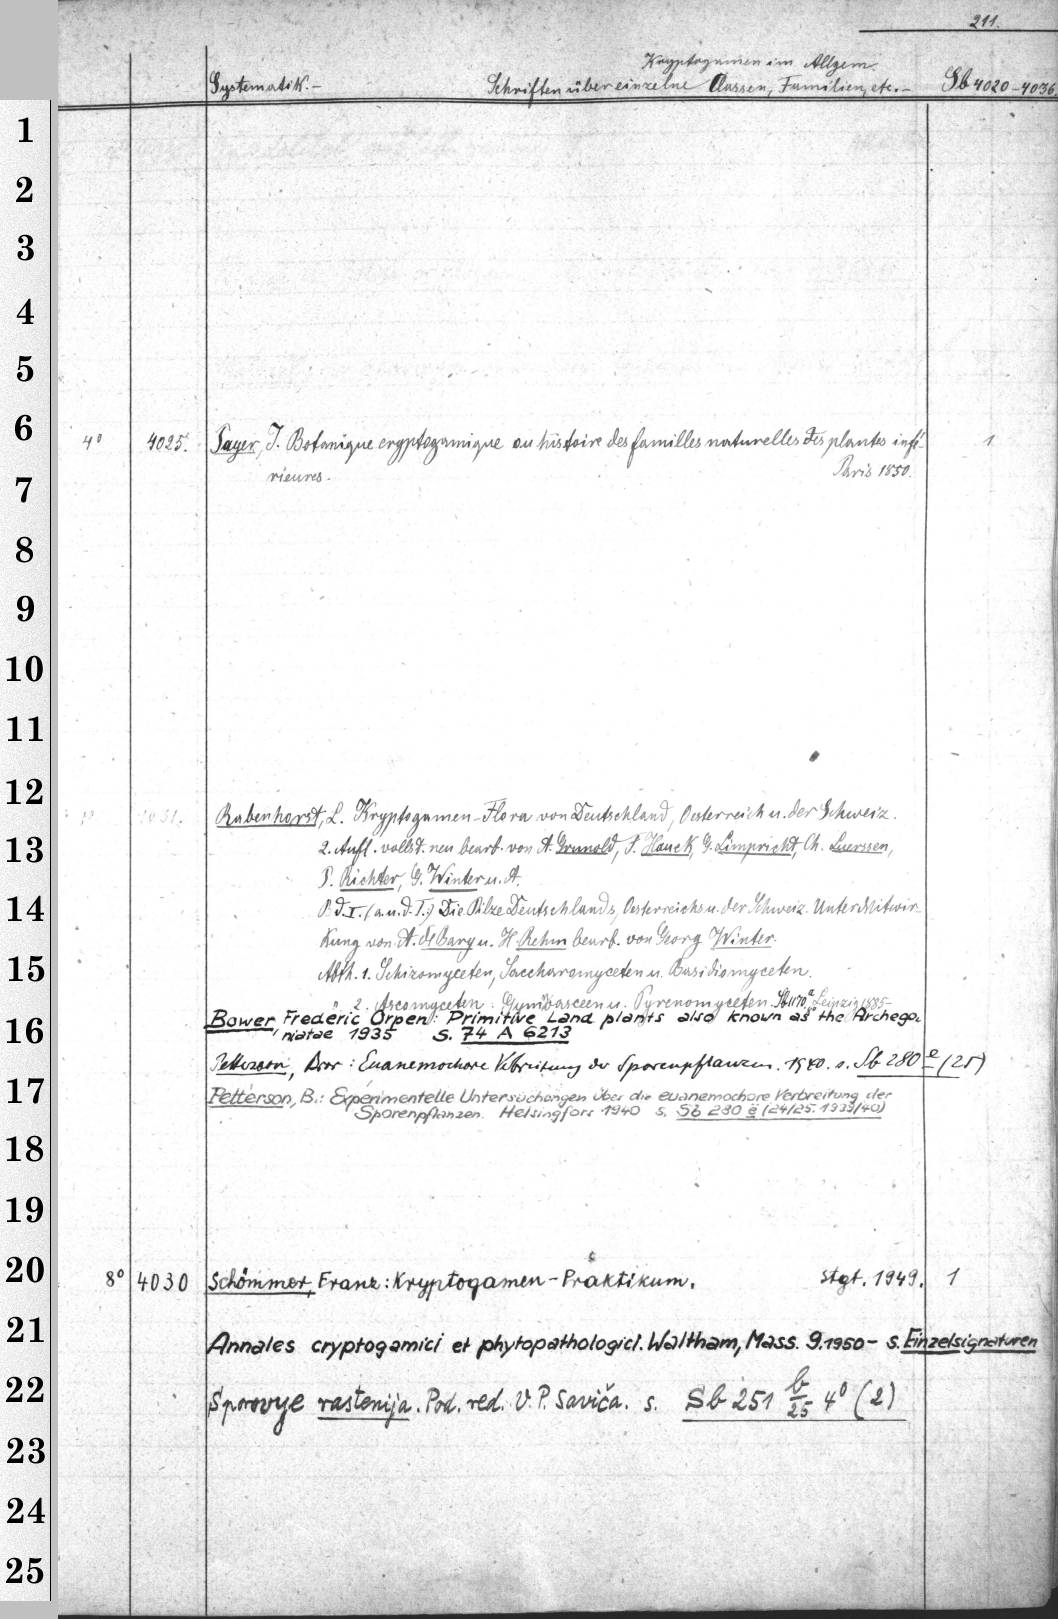 211.
Kryptogamen im Allgem.
Systematik.— Schriften über einzelne Classen, Familien, etc.— Sb 4020–4036
1
2
3
4
5
6
4° 4025. Payer, J. Botanique cryptogamique ou histoire des familles naturelles des plantes infé- 1
rieures. Paris 1850.
7
8
9
10
11
12
Rabenhorst, L. Kryptogamen-Flora von Deutschland, Oesterreich u. der Schweiz.
13
2. Aufl. vollst. neu bearb. von A. Grunold, F. Hauck, G. Limpricht, Ch. Luerssen,
P. Richter, G. Winter u. A.
14
Bd. I. (a. u. d. T.:) Die Pilze Deutschlands, Oesterreichs u. der Schweiz. Unter Mitwir-
kung von A. de Bary u. H. Rehm bearb. von Georg Winter.
15
Abth. 1. Schizomyceten, Saccharomyceten u. Basidiomyceten.
" 2. Ascomyceten: Gymnoasceen u. Pyrenomyceten. Leipzig 1885–
16
Bower, Frederic Orpen: Primitive Land plants also known as the Archego
niatae 1935 s. 74 A 6213
Pettersson, Bror: Euanemochore Verbreitung der Sporenpflanzen. 1940. s. Sb 280 e (25)
17
Petterson, B.: Experimentelle Untersuchungen über die euanemochore Verbreitung der
Sporenpflanzen. Helsingfors 1940 s. Sb 280 e (24/25. 1939/40)
18
19
20
8° 4030 Schömmer, Franz: Kryptogamen-Praktikum. Stgt. 1949. 1
21
Annales cryptogamici et phytopathologici. Waltham, Mass. 9.1950– s. Einzelsignaturen
22
Sporovye rastenija. Pod. red. V. P. Saviča. s. Sb 251 b/25 4° (2)
23
24
25